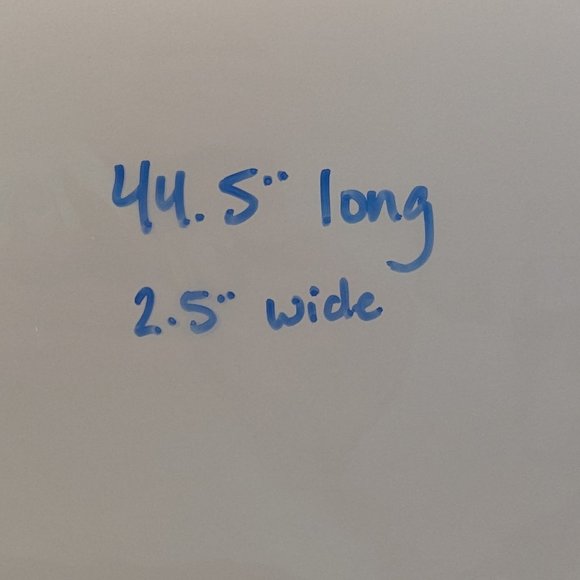 44.5" long
2.5" wide